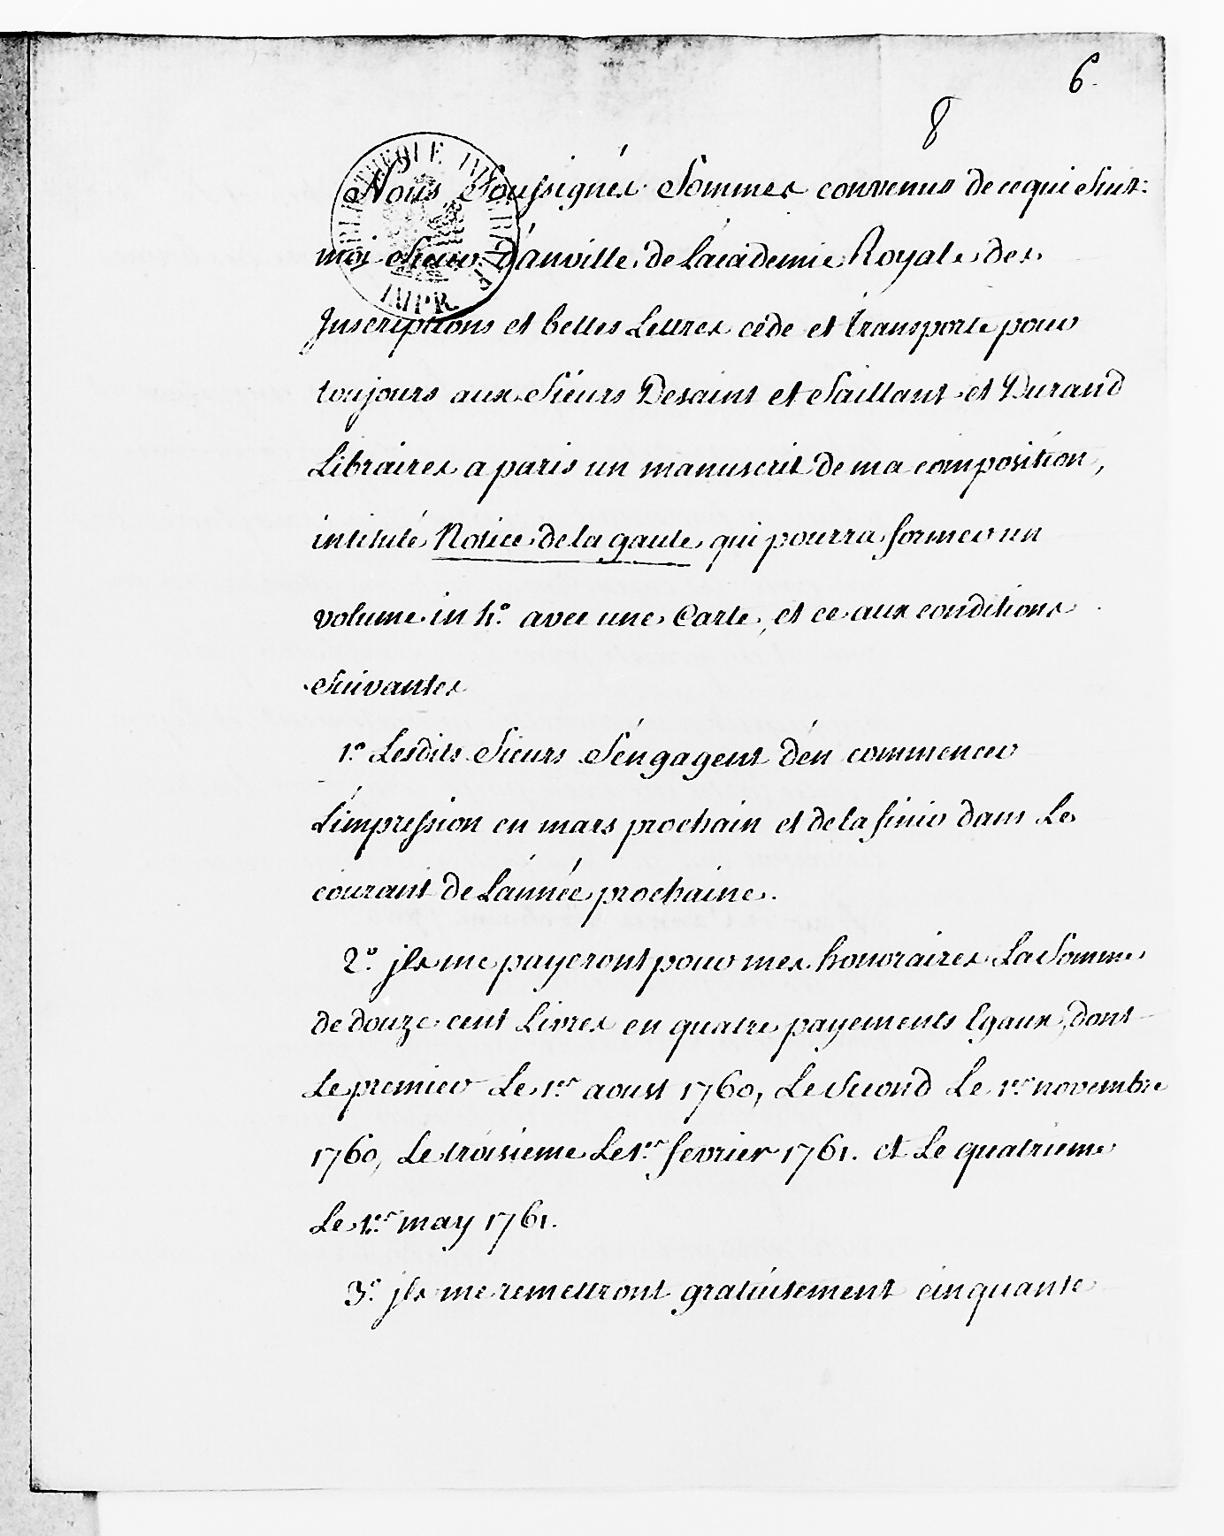 6.
8
BIBLIOTHEQUE IMPERIALE
IMPR.
Nous Soussignés Sommes convenus de ce qui Suit:
moi Sieur d'anville de L'academie Royale des
Inscriptions et belles Lettres cede et transporte pour
toujours aux Sieurs Desaint et Saillant et Durand
Libraires a paris un manuscrit de ma composition,
intitulé Notice de la gaule qui pourra former un
volume in 4º avec une Carte, et ce aux conditions
Suivantes
1º Lesdits Sieurs S'engagent d'en commencer
L'impression en mars prochain et de la finir dans Le
courant de L'année prochaine.
2º jls me payeront pour mes honoraires La Somme
de douze cent Livres en quatre payements Egaux, dont
Le premier Le 1er aoust 1760, Le Second Le 1er novembre
1760, Le troisieme Le 1er fevrier 1761. et Le quatrieme
Le 1er may 1761.
3º jls me remettront gratuitement cinquante